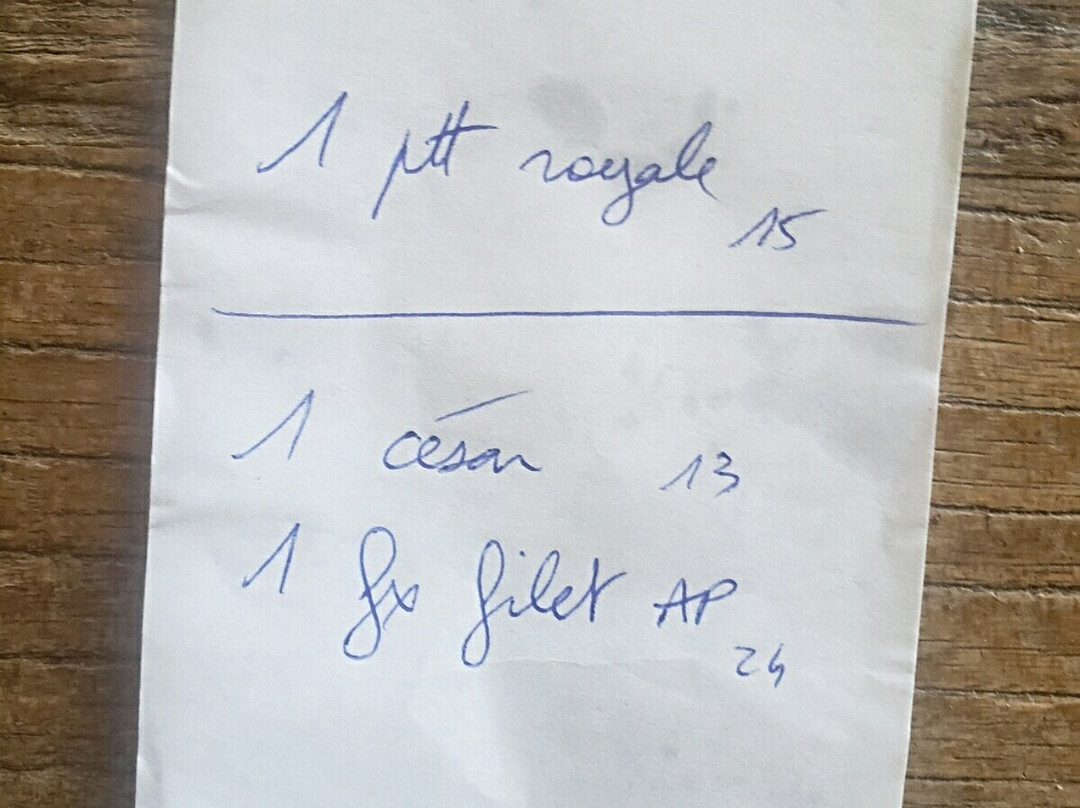 1 ptt royale
15
1 césar 13
1 fx filet AP
24